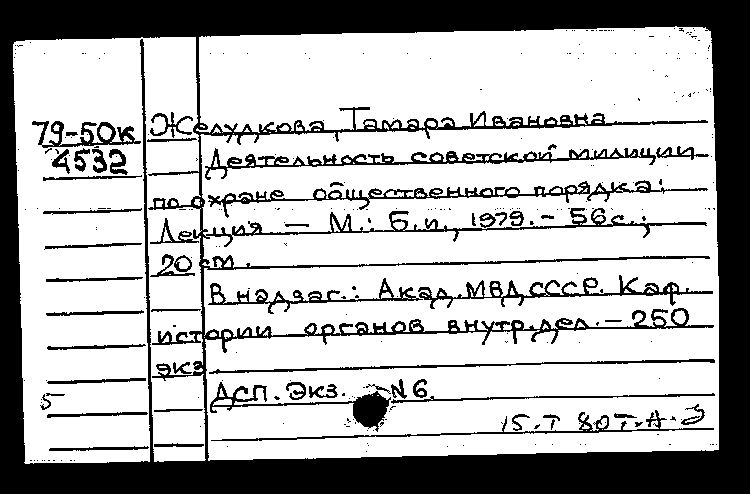 79-50к Желудкова, Тамара Ивановна
4532 Деятельность советской милиции
по охране общественного порядка:
Лекция — М.: Б.и., 1979. - 56 с.;
20 см.
В надзаг.: Акад. МВД СССР. Каф.
истории органов внутр. дел. - 250
экз.
ДСП. Экз. N6.
5
15.Т 80 Т.А.